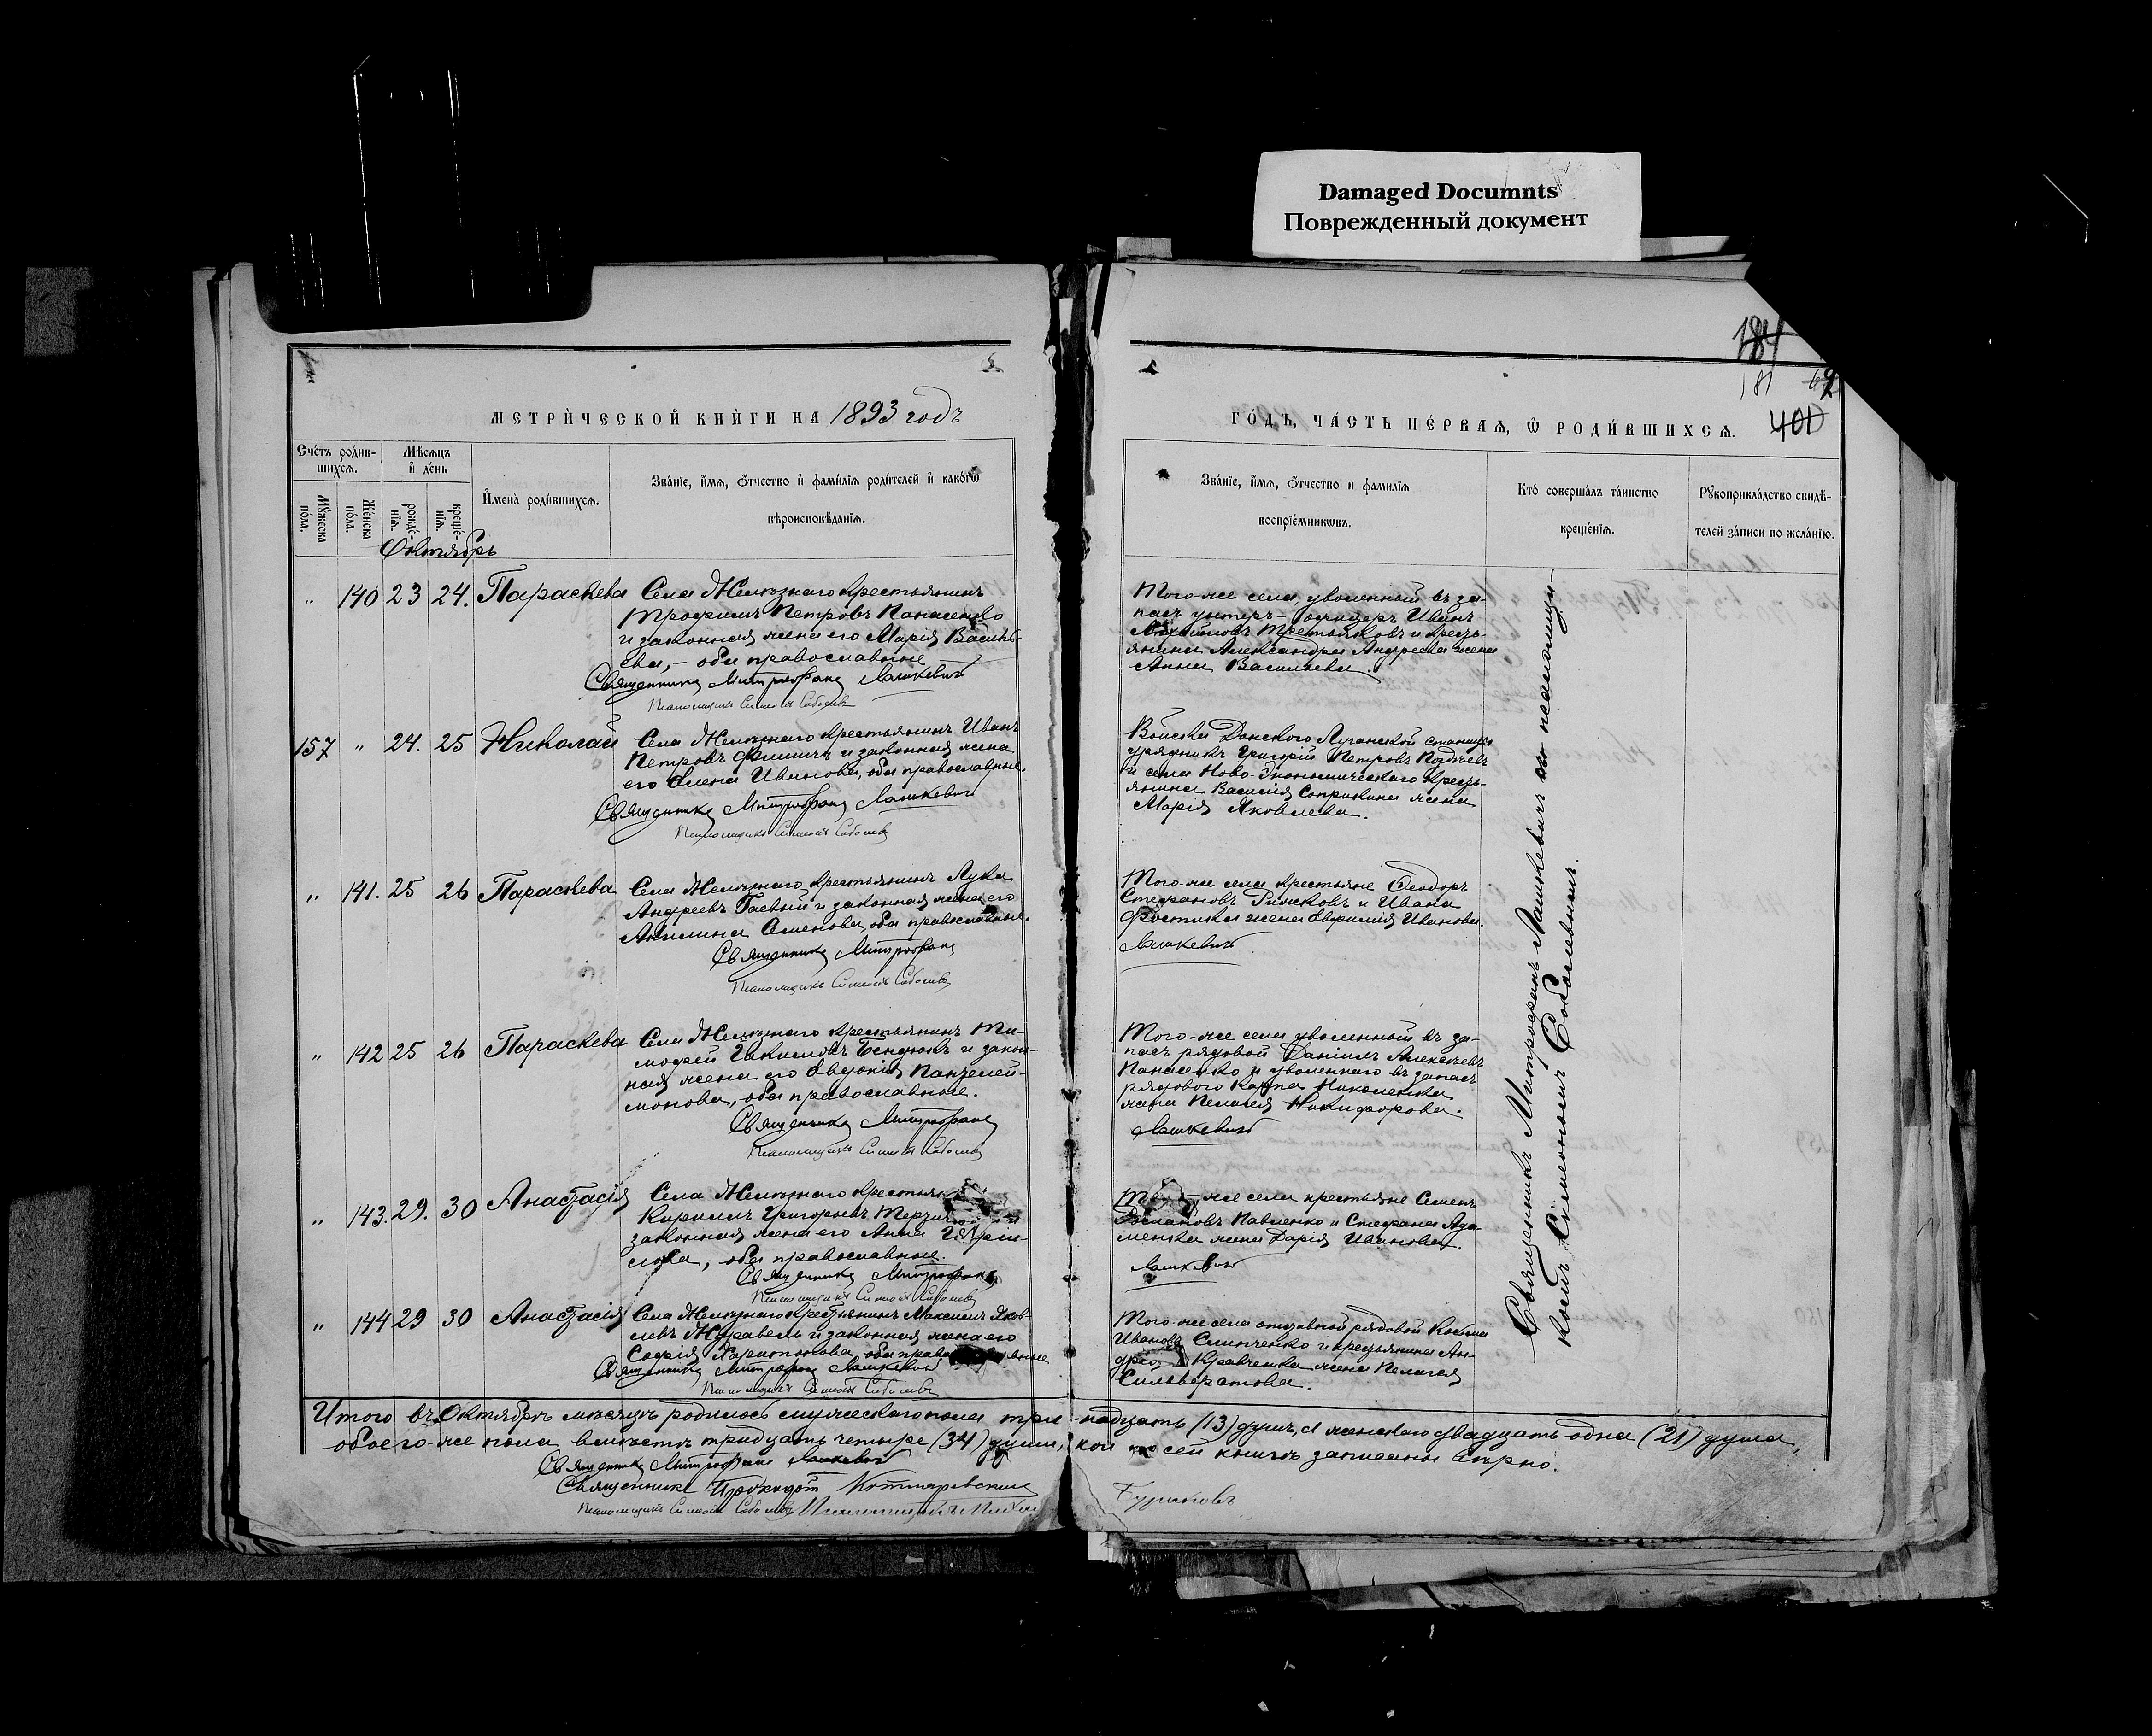 Damaged Documnts
Поврежденный документ
184
181
401
МЕТРИ́ЧЕСКОЙ КНИ́ГИ НА 1893 годъ
ГО́ДЪ, ЧА́СТЬ ПЕ́РВАЯ, Ѡ РОДИ́ВШИХСЯ.
Сче́тъ ро́див-
шихся.
Мѣ́сяцъ
и҆ де́нь
Мꙋ́жеска
по́ла.
Же́нска
по́ла.
рожде́-
нія.
креще́-
нія.
И҆мена̀ роди́вшихся.
Зва́ніе, и҆́мя, о҆́тчество и҆ фами́лія роди́телей и҆ како́гѡ
вѣроисповѣ́данія.
Зва́ніе, и҆́мя, о҆́тчество и фами́лія
воспріе́мникѡвъ.
Кто́ соверша́лъ та́инство
креще́нія.
Рꙋкоприкла́дство свидѣ́-
телей за́писи по жела́нію.
Октябрь
„ 140 23 24. Параскева
Села Желѣзнаго крестьянинъ
Трофимъ Петровъ Панасенко
и законная жена его Марія Василь-
ева, – оба православные
Священникъ Митрофанъ Лашкевичъ
Псаломщикъ Симеонъ Соболевъ
Того-же села уволенный въ за-
пасъ унтеръ-офицеръ Иванъ
Михайловъ Третьяковъ и кресть-
янина Александра Андреева жена
Анна Васильева.
157 „ 24. 25 Николай
Села Желѣзнаго крестьянинъ Иванъ
Петровъ и законная жена
его Елена Иванова, оба православные.
Священникъ Митрофанъ Лашкевичъ
Псаломщикъ Симеонъ Соболевъ
Войска Донского Луганской станицы
урядникъ Григорій Петровъ
и села Ново-Экономическаго кресть-
янина Василія жена
Марія Яковлева.
„ 141. 25 26 Параскева
Села Желѣзнаго крестьянинъ Лука
Андреевъ Гаевый и законная жена его
Акилина Семенова, оба православные.
Священникъ Митрофанъ
Псаломщикъ Симеонъ Соболевъ
Того-же села крестьяне Ѳеодоръ
Стефановъ и Ивана
жена Евфимія Иванова.
Лашкевичъ
„ 142 25 26 Параскева
Села Желѣзнаго крестьянинъ Ти-
мофей Бендюкъ и закон-
ная жена его Евдокія Пантелей-
монова, оба православные.
Священникъ Митрофанъ
Псаломщикъ Симеонъ Соболевъ
Того-же села уволенный въ за-
пасъ рядовой Даніилъ Алексѣевъ
Панасенко и уволеннаго въ запасъ
рядового Карпа Николенка
жена Пелагея Никифорова.
Лашкевичъ
„ 143. 29. 30 Анастасія
Села Желѣзнаго крестьян
Кириллъ Григорьевъ
законная жена его Анна
оба православные.
Священникъ Митрофанъ
Псаломщикъ Симеонъ Соболевъ
же села крестьяне Семенъ
Романовъ Павленко и Стефана Ада-
менка жена Дарія Иванова.
Лашкевичъ
„ 144 29 30 Анастасія
Села Желѣзнаго крестьянинъ Максимъ Яков-
левъ Журавель и законная жена его
Софія Харитонова, оба
Священникъ Митрофанъ Лашкевичъ
Псаломщикъ Симеонъ Соболевъ
Того-же села отставной рядовой Козьма
Ивановъ и крестьянина Ан-
дрея Кравченка жена Пелагея
Сильверстова.
Священникъ Митрофанъ Лашкевичъ съ псаломщи-
комъ Симеономъ Соболевымъ.
Итого въ Октябрѣ мѣсяцѣ родилось мужескаго пола три-надцать (13) душъ, а женскаго двадцать одна (21) душа,
обоего-же пола вмѣстѣ тридцать четыре (34) души, кои по сей книгѣ записаны вѣрно.
Священникъ Митрофанъ Лашкевичъ
Священникъ Котляревскій
Псаломщикъ Симеонъ Соболевъ